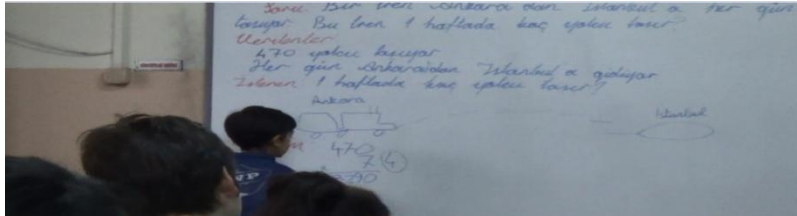 Soru: Bir tren Ankara'dan İstanbul'a her gün
taşıyor. Bu tren 1 haftada kaç yolcu taşır?
Verilenler
470 yolcu taşıyor
Her gün Ankara'dan İstanbul'a gidiyor
İstenen 1 haftada kaç yolcu taşır?
Ankara
İstanbul
470
7 4
90
WP